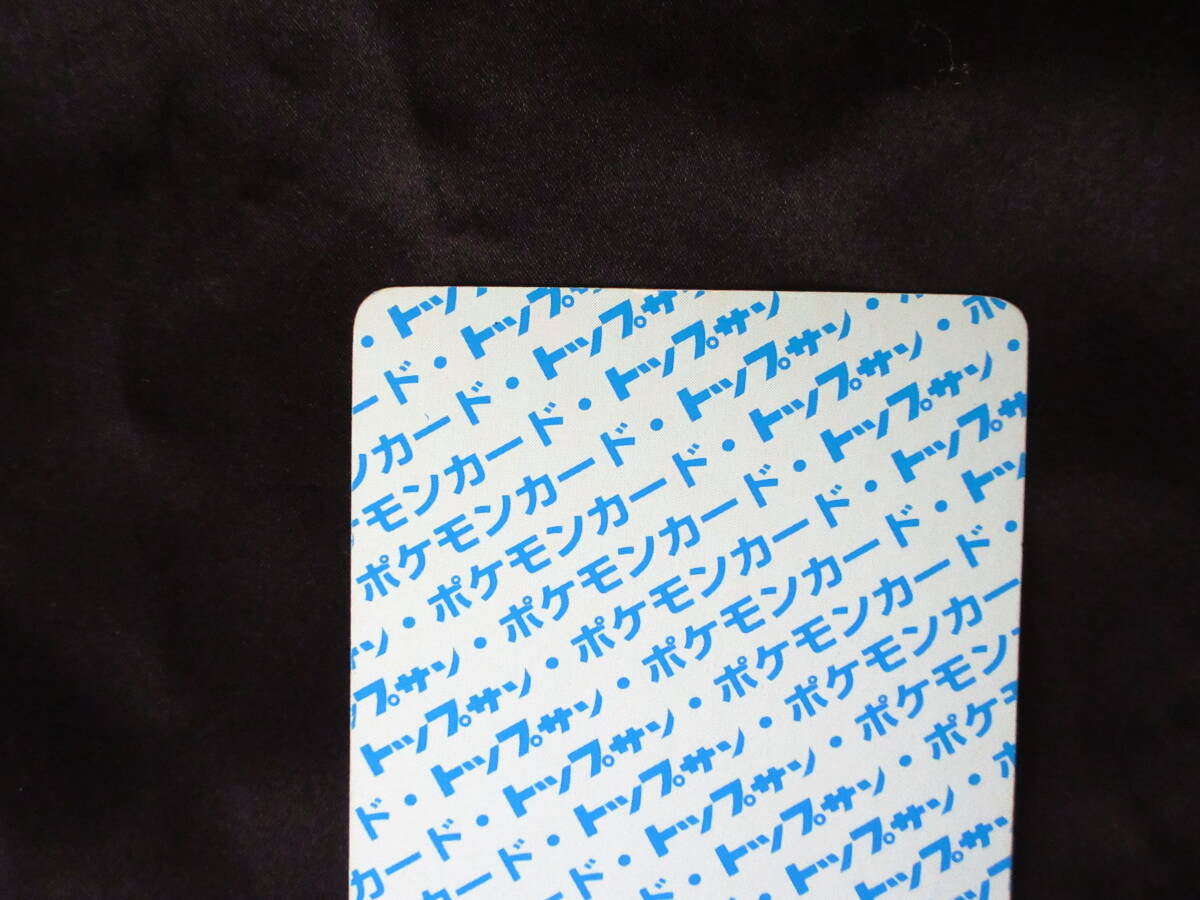 ・トッ
ード・トップ
ンカード・トップサ
ケモンカード・トップサ
ポケモンカード・トップサン・
サン・ポケモンカード・トップサン・ポ
プサン・ポケモンカード・トップサン・
トップサン・ポケモンカード・トップサ
ド・トップサン・ポケモンカード・トッ
カード・トップサン・ポケモンカード・
カード・トップサン・ポケモンカー
ド・トップサン・ポケモン
・トップサン・ポケ
トップサン・ポ
トップサ
トッ